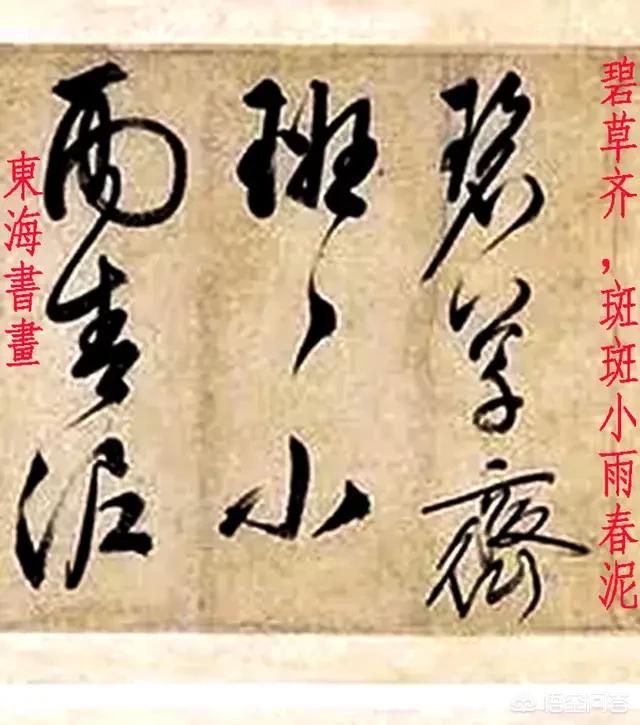 碧草齐，斑斑小雨春泥
碧草齊
斑〻小
雨春泥
東海書畫
悟空问答